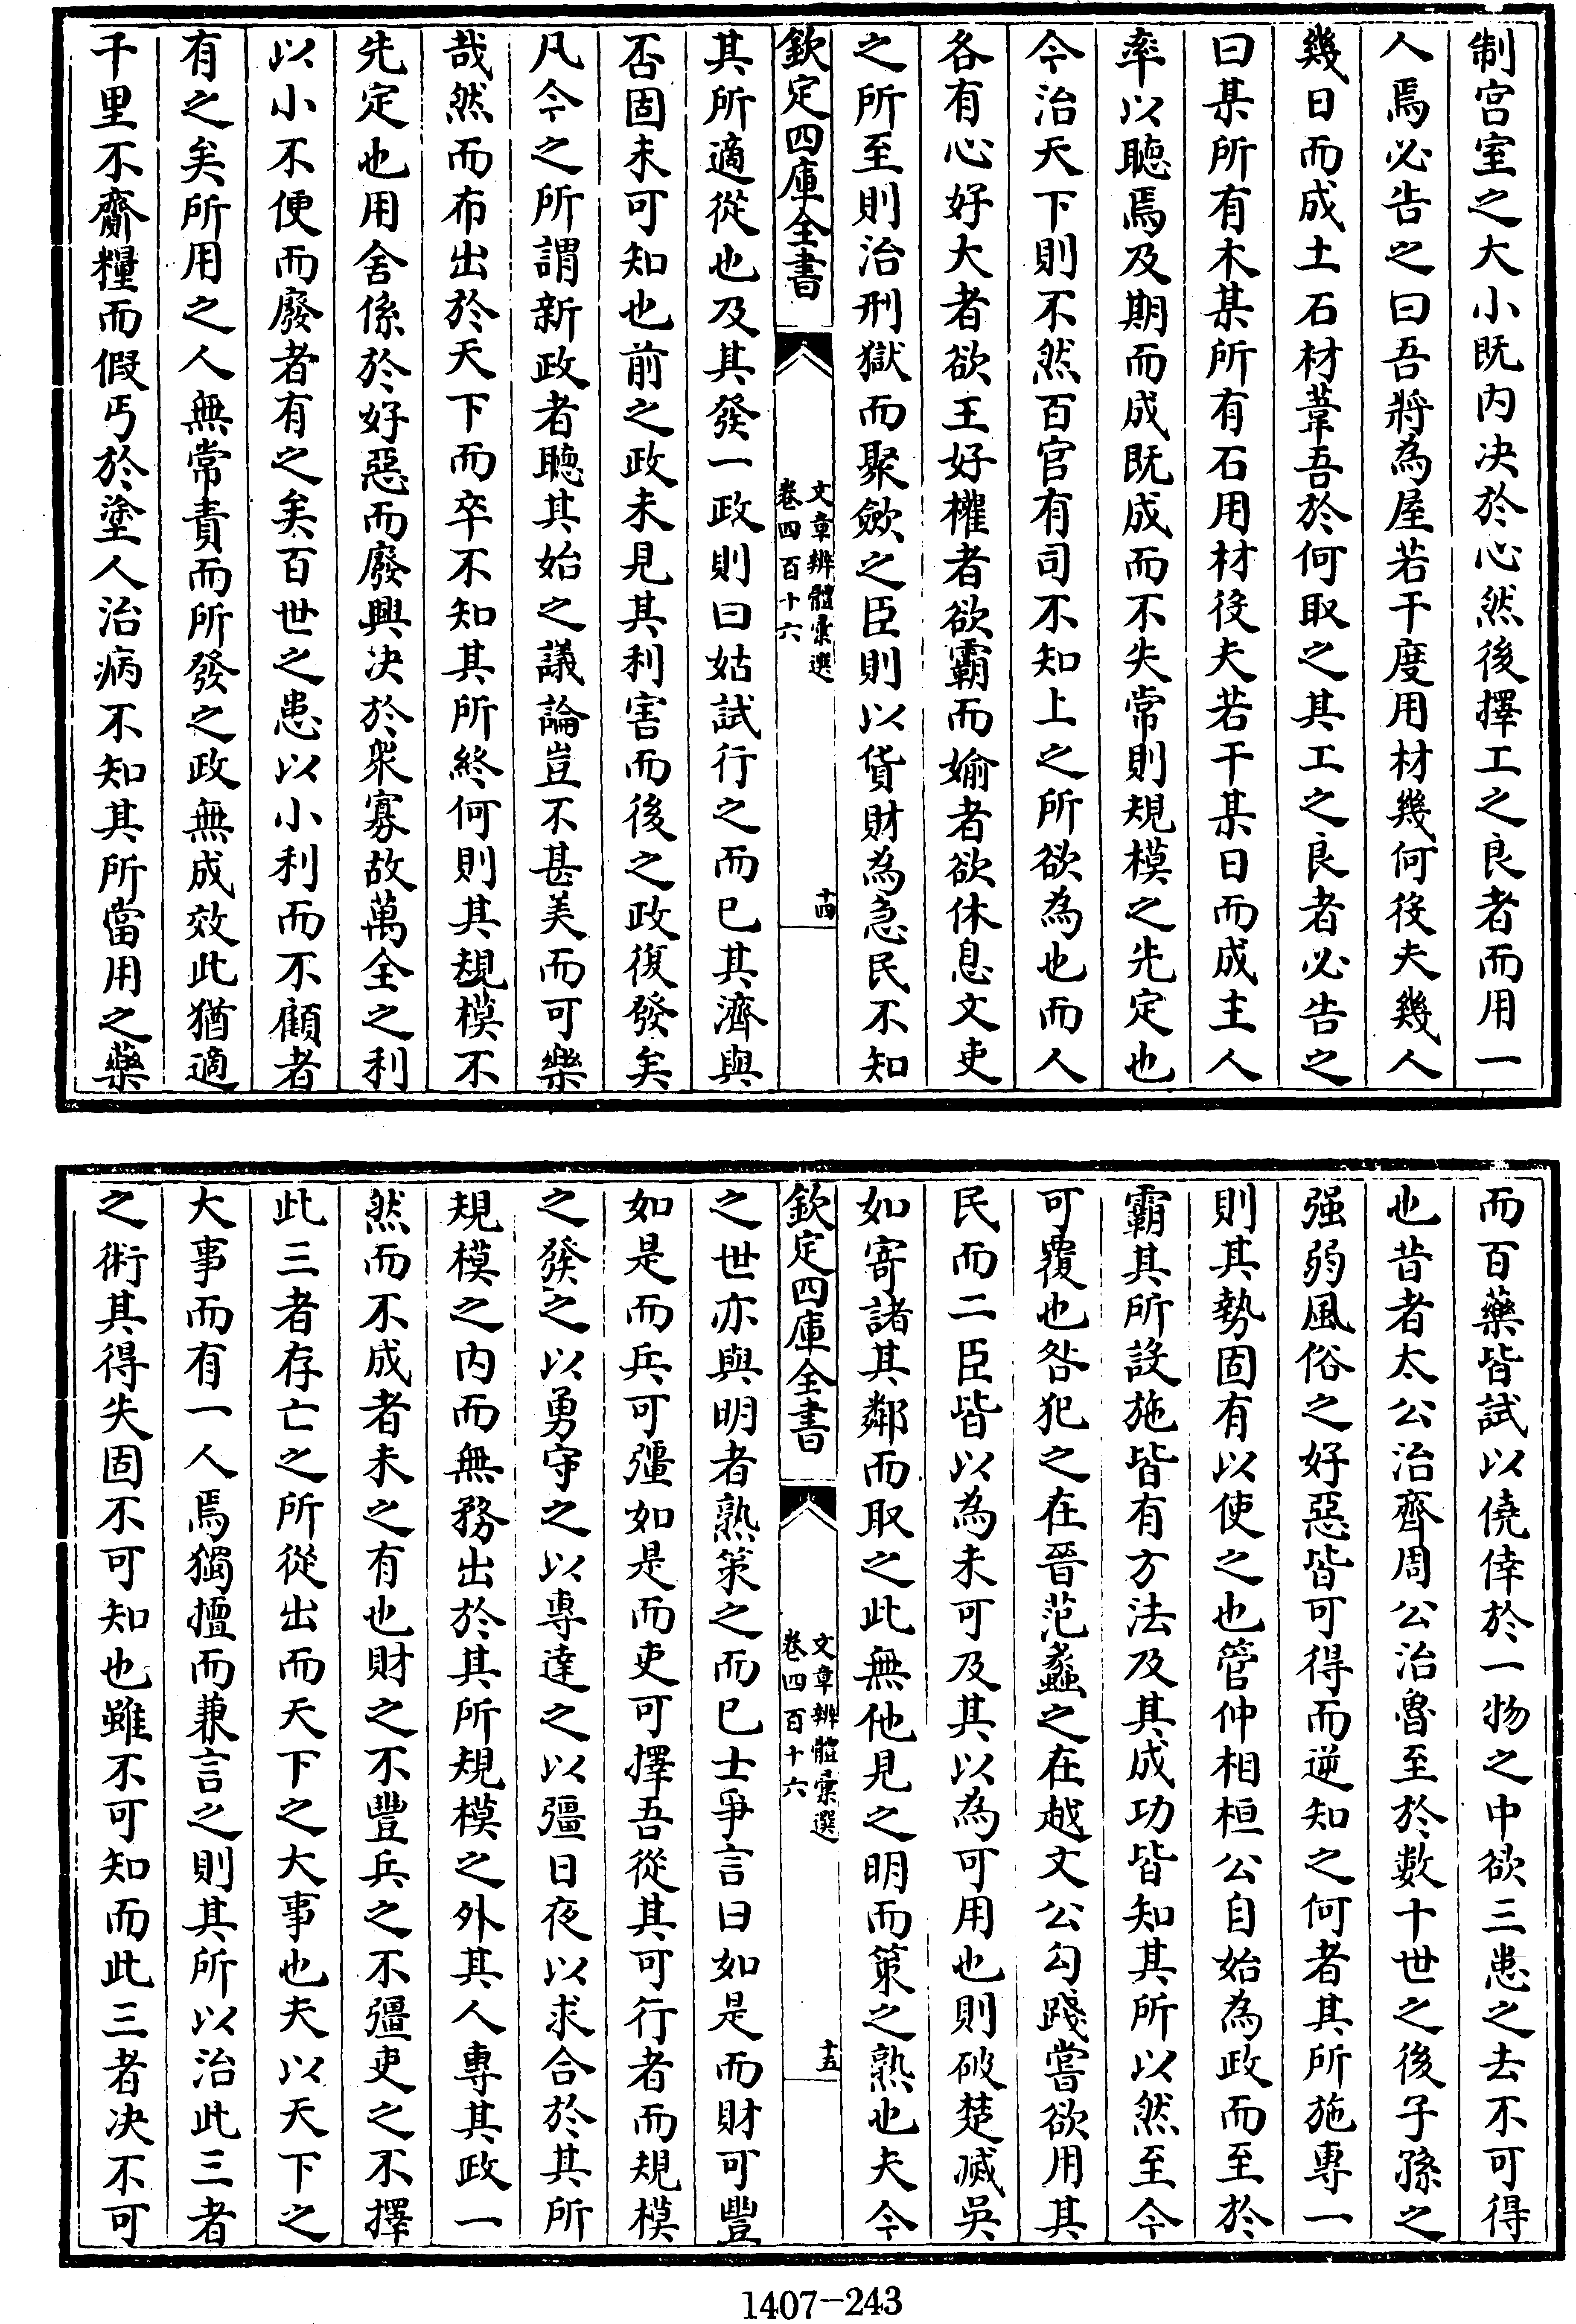 制宫室之大小既内决於心然後擇工之良者而用一
人焉必告之曰吾將為屋若干度用材幾何役夫幾人
幾日而成土石材葦吾於何取之其工之良者必告之
曰某所有木某所有石用材役夫若干某日而成主人
率以聽焉及期而成既成而不失常則規模之先定也
今治天下則不然百官有司不知上之所欲為也而人
各有心好大者欲王好權者欲霸而媮者欲休息文吏
之所至則治刑獄而聚斂之臣則以貨財為急民不知
欽定四庫全書
文章辨體彙選
卷四百十六
十四
其所適從也及其發一政則曰姑試行之而已其濟與
否固未可知也前之政未見其利害而後之政復發矣
凡今之所謂新政者聽其始之議論豈不甚美而可樂
哉然而布出於天下而卒不知其所終何則其規模不
先定也用舍係於好惡而廢興决於衆寡故萬全之利
以小不便而廢者有之矣百世之患以小利而不顧者
有之矣所用之人無常責而所發之政無成效此猶適
千里不齎糧而假丐於塗人治病不知其所當用之藥
而百藥皆試以僥倖於一物之中欲三患之去不可得
也昔者太公治齊周公治魯至於數十世之後子孫之
强弱風俗之好惡皆可得而逆知之何者其所施專一
則其勢固有以使之也管仲相桓公自始為政而至於
霸其所設施皆有方法及其成功皆知其所以然至今
可覆也咎犯之在晉范蠡之在越文公勾踐嘗欲用其
民而二臣皆以為未可及其以為可用也則破楚滅吳
如寄諸其鄰而取之此無他見之明而策之熟也夫今
欽定四庫全書
文章辨體彙選
卷四百十六
十五
之世亦與明者熟策之而已士爭言曰如是而財可豐
如是而兵可彊如是而吏可擇吾從其可行者而規模
之發之以勇守之以專達之以彊日夜以求合於其所
規模之内而無務出於其所規模之外其人專其政一
然而不成者未之有也財之不豐兵之不彊吏之不擇
此三者存亡之所從出而天下之大事也夫以天下之
大事而有一人焉獨擅而兼言之則其所以治此三者
之術其得失固不可知也雖不可知而此三者决不可
1407-243